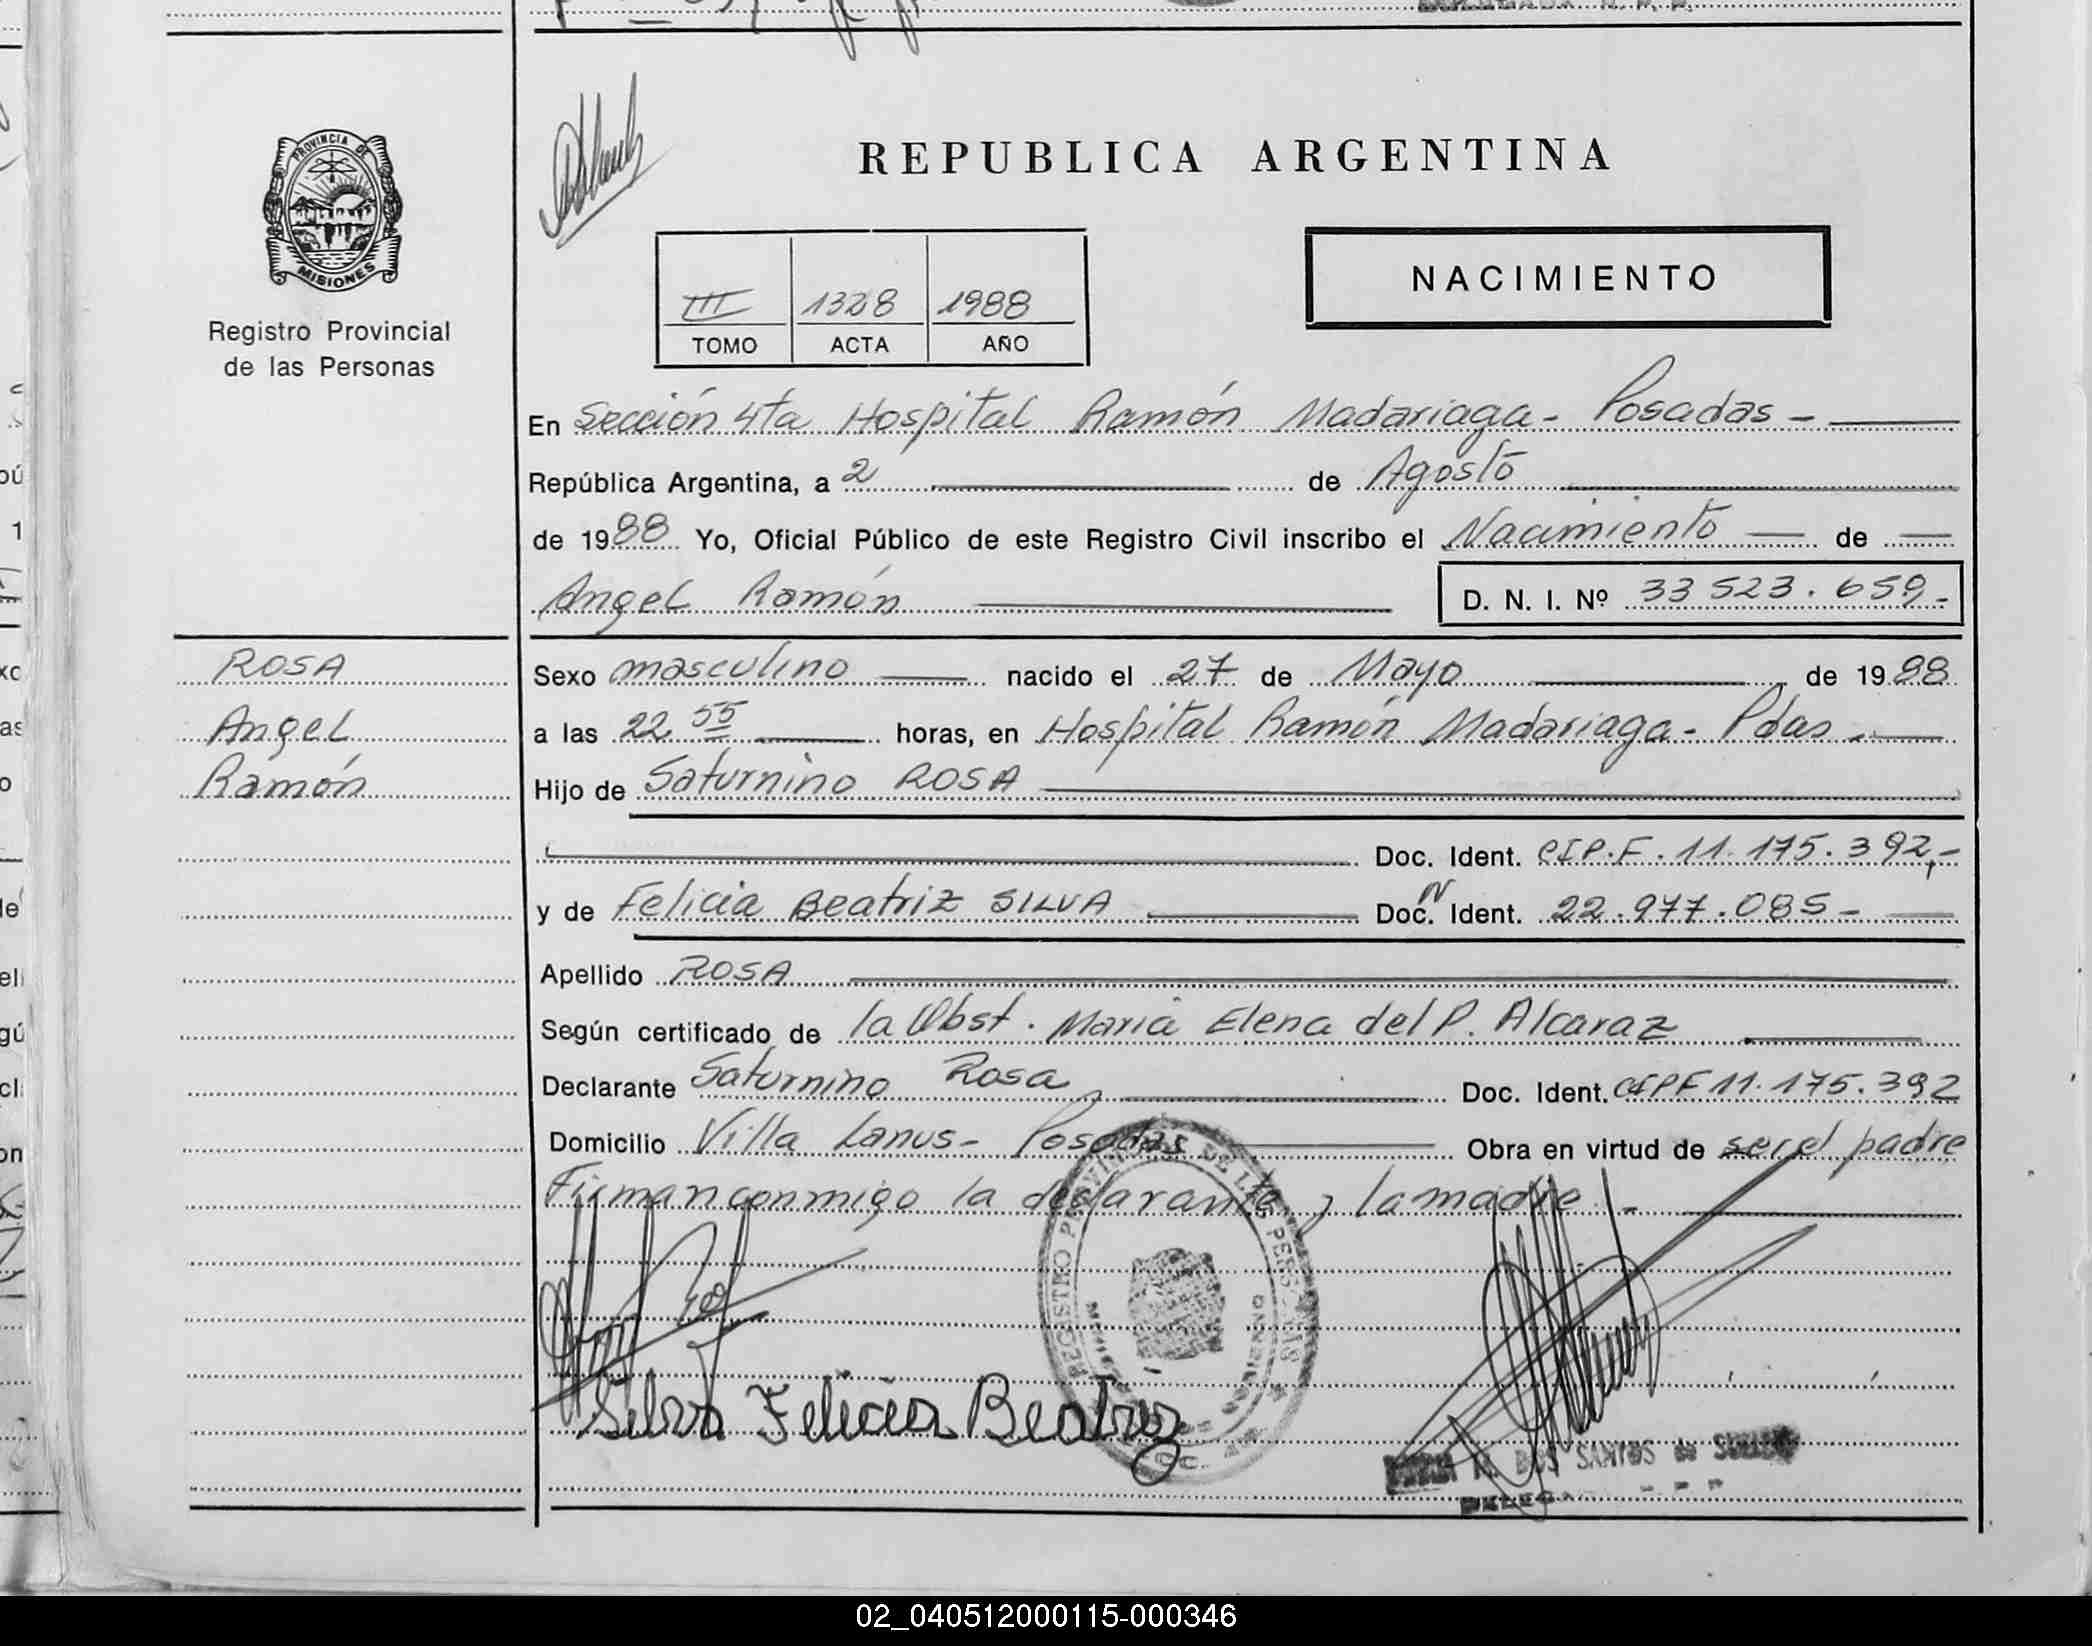 PROVINCIA DE
MISIONES
Registro Provincial
de las Personas
REPUBLICA ARGENTINA
NACIMIENTO
III 1328 1988
TOMO ACTA AÑO
En Sección 4ta Hospital Ramón Madariaga - Posadas -
República Argentina, a 2 de Agosto
de 1988 Yo, Oficial Público de este Registro Civil inscribo el Nacimiento de
Angel Ramón D. N. I. Nº 33 523.659,-
ROSA
Angel
Ramón
Sexo masculino nacido el 27 de Mayo de 1988
a las 22 55 horas, en Hospital Ramón Madariaga - Pdas -
Hijo de Saturnino ROSA
Doc. Ident. CIP.F. 11.175.392,-
y de Felicia Beatriz SILVA Doc. N Ident. 22.977.085 -
Apellido ROSA
Según certificado de la Obst. Maria Elena del P. Alcaraz
Declarante Saturnino Rosa Doc. Ident. CIPF 11.175.392
Domicilio Villa Lanus - Posadas Obra en virtud de ser el padre
Firman conmigo la declarante y la madre . -
REGISTRO PROVINCIAL DE LAS PERSONAS
Silva Felicia Beatriz
DOS SANTOS de
02_040512000115-000346